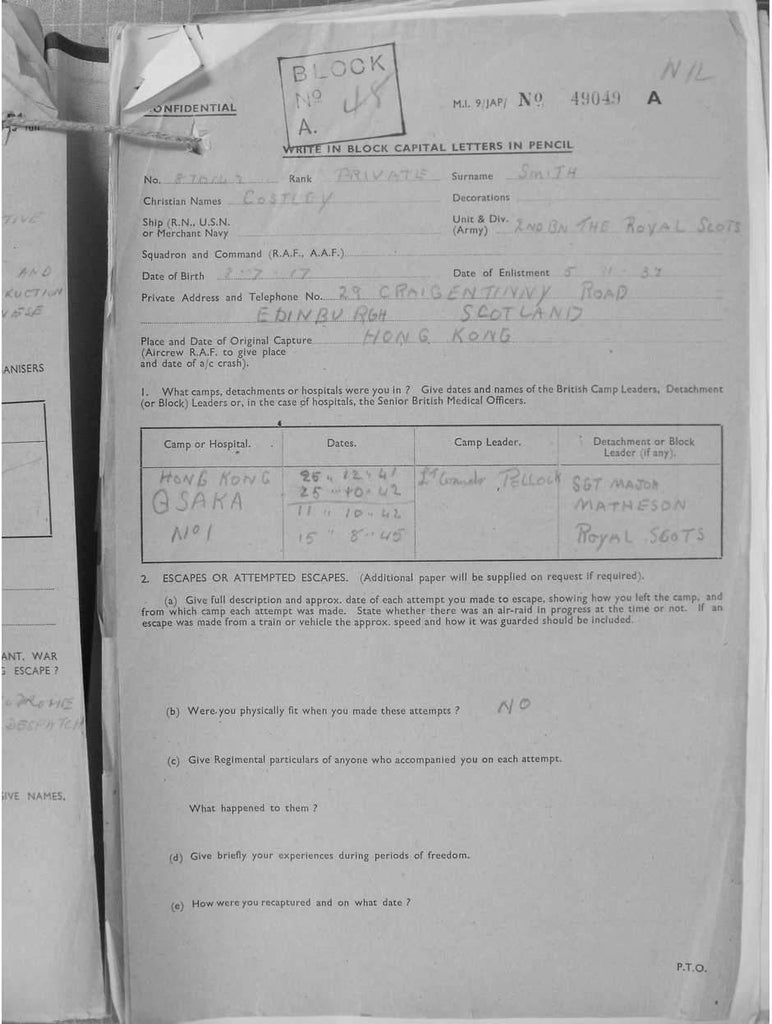 TIVE
AND
RUCTION
VESE
ANISERS
ANT. WAR
G ESCAPE ?
DESPATCH
GIVE NAMES,
NIL
BLOCK
No 48
A.
CONFIDENTIAL
M.I. 9/JAP/ No 49049 A
WRITE IN BLOCK CAPITAL LETTERS IN PENCIL
No. Rank PRIVATE Surname SMITH
Christian Names COSTLEY Decorations
Ship (R.N., U.S.N. or Merchant Navy
Unit & Div. (Army) 2ND BN THE ROYAL SCOTS
Squadron and Command (R.A.F., A.A.F.)
Date of Birth 8-7-17 Date of Enlistment 5 11 37
Private Address and Telephone No. 29 CRAIGENTINNY ROAD
EDINBURGH SCOTLAND
Place and Date of Original Capture HONG KONG
(Aircrew R.A.F. to give place
and date of a/c crash).
1. What camps, detachments or hospitals were you in ? Give dates and names of the British Camp Leaders, Detachment
(or Block) Leaders or, in the case of hospitals, the Senior British Medical Officers.
Camp or Hospital. Dates. Camp Leader. Detachment or Block
Leader (if any).
HONG KONG 25 " 12 " 41 POLLOCK SGT MAJOR
OSAKA 25 " 10 " 42 MATHESON
11 " 10 " 42
No 1 15 " 8 " 45 ROYAL SCOTS
2. ESCAPES OR ATTEMPTED ESCAPES. (Additional paper will be supplied on request if required).
(a) Give full description and approx. date of each attempt you made to escape, showing how you left the camp, and
from which camp each attempt was made. State whether there was an air-raid in progress at the time or not. If an
escape was made from a train or vehicle the approx. speed and how it was guarded should be included.
(b) Were you physically fit when you made these attempts ? NO
(c) Give Regimental particulars of anyone who accompanied you on each attempt.
What happened to them ?
(d) Give briefly your experiences during periods of freedom.
(e) How were you recaptured and on what date ?
P.T.O.